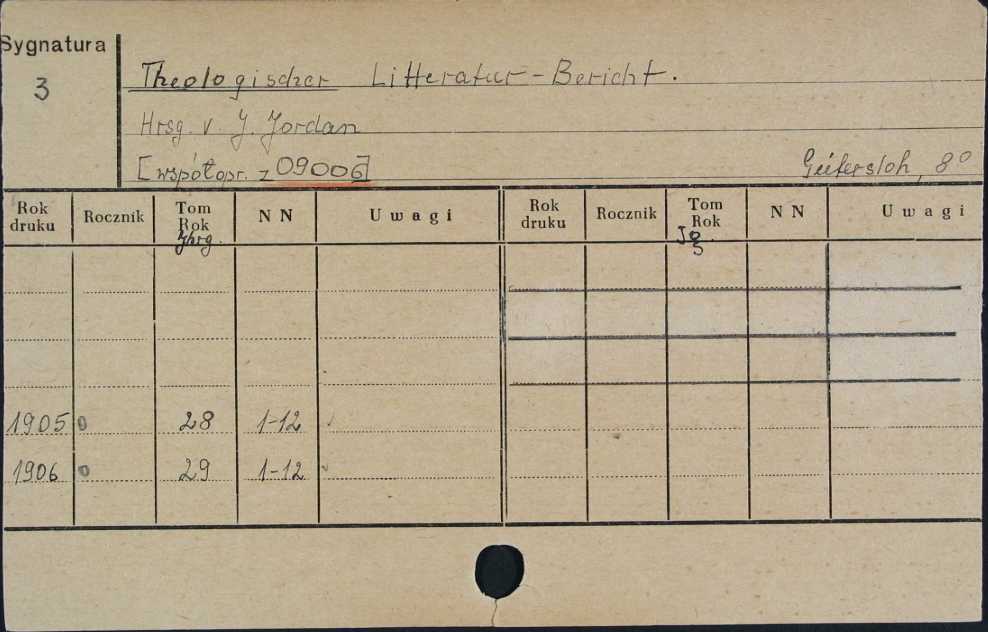 Sygnatura
3
Theologischer Litteratur-Bericht.
Hrsg. v. J. Jordan
[współopr. z 09006]
Gütersloh, 8°
Rok druku Rocznik Tom Rok Jhrg. NN Uwagi Rok druku Rocznik Tom Rok Jg. NN Uwagi
1905 0 28 1-12 ✓
1906 0 29 1-12 ✓